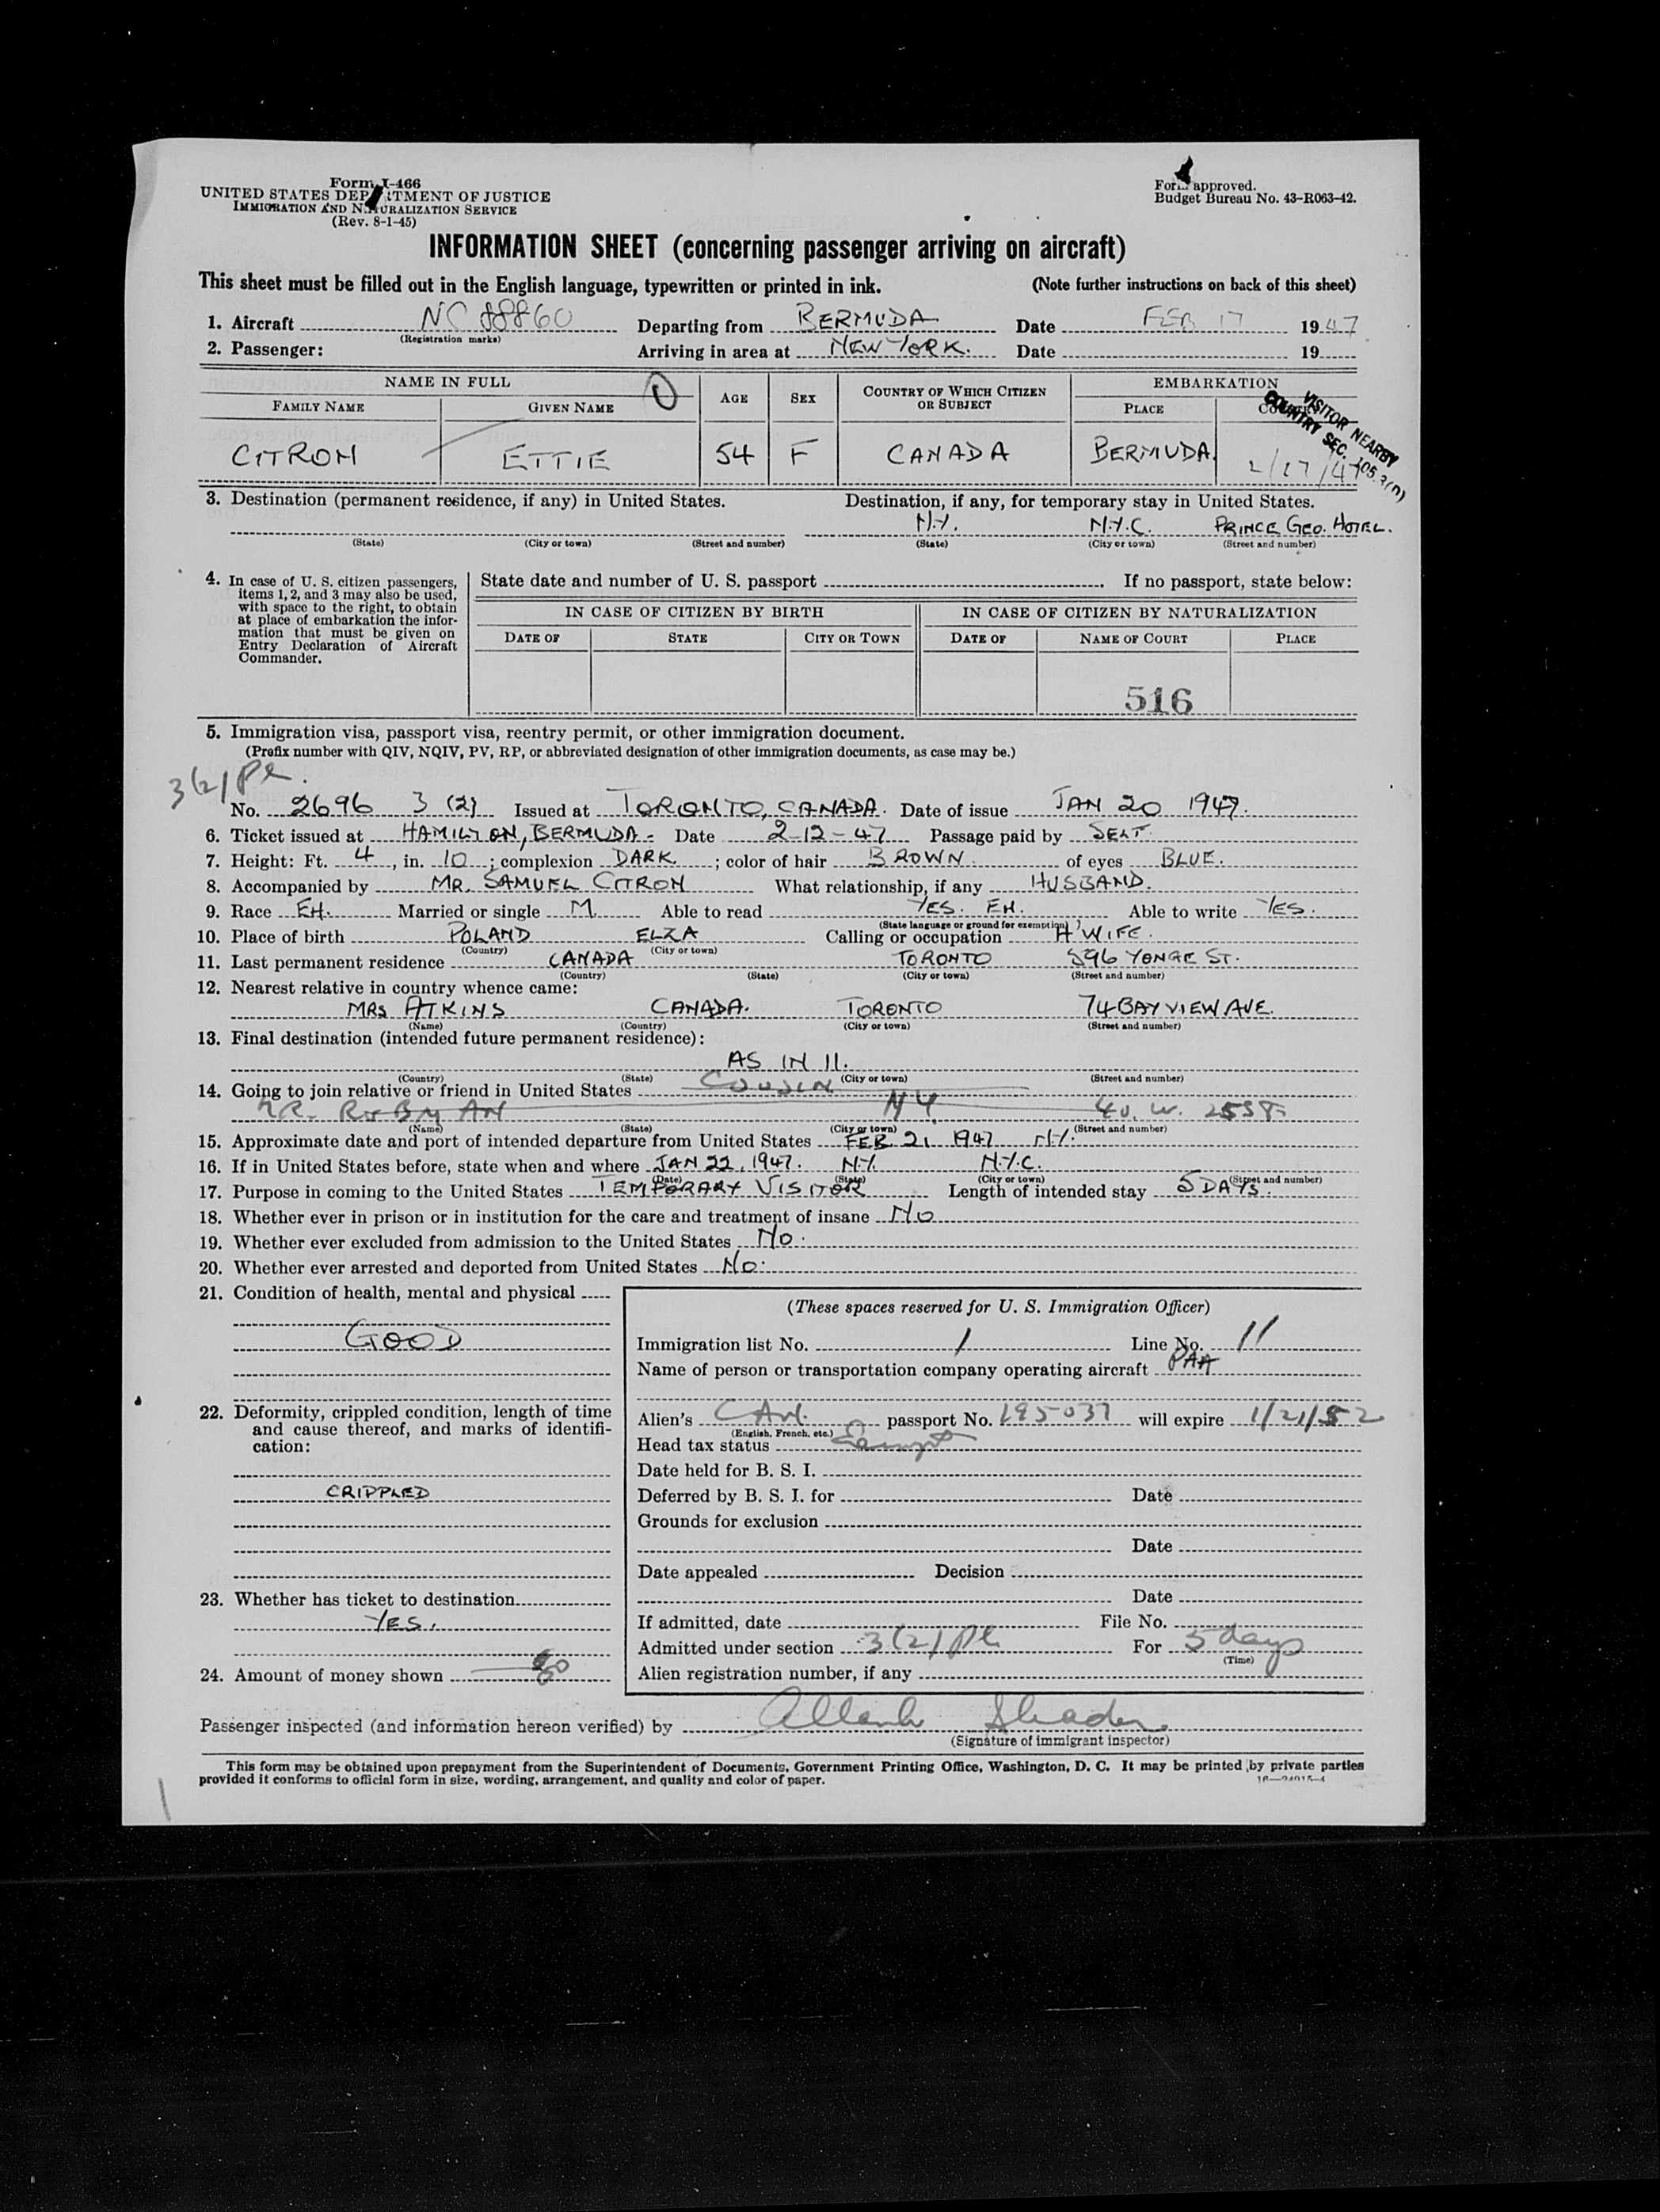 Form I-466
UNITED STATES DEPARTMENT OF JUSTICE
IMMIGRATION AND NATURALIZATION SERVICE
(Rev. 8-1-45)
Form approved.
Budget Bureau No. 43-R063-42.
INFORMATION SHEET (concerning passenger arriving on aircraft)
This sheet must be filled out in the English language, typewritten or printed in ink. (Note further instructions on back of this sheet)
1. Aircraft NC 88860 Departing from BERMUDA Date FEB 17 1947
(Registration marks)
2. Passenger: Arriving in area at NEW YORK. Date 19
NAME IN FULL 1 AGE SEX COUNTRY OF WHICH CITIZEN OR SUBJECT EMBARKATION
FAMILY NAME GIVEN NAME PLACE COUNTRY
VISITOR NEARBY
COUNTRY SEC. 105.3(n)
CITRON ETTIE 54 F CANADA BERMUDA. 2/17/47
3. Destination (permanent residence, if any) in United States. Destination, if any, for temporary stay in United States.
N.Y. N.Y.C. PRINCE GEO. HOTEL.
(State) (City or town) (Street and number) (State) (City or town) (Street and number)
4. In case of U. S. citizen passengers, items 1, 2, and 3 may also be used, with space to the right, to obtain at place of embarkation the information that must be given on Entry Declaration of Aircraft Commander.
State date and number of U. S. passport . If no passport, state below:
IN CASE OF CITIZEN BY BIRTH IN CASE OF CITIZEN BY NATURALIZATION
DATE OF STATE CITY OR TOWN DATE OF NAME OF COURT PLACE
516
5. Immigration visa, passport visa, reentry permit, or other immigration document.
(Prefix number with QIV, NQIV, PV, RP, or abbreviated designation of other immigration documents, as case may be.)
3(2)/Pl.
No. 2696 3 (2) Issued at TORONTO, CANADA. Date of issue JAN 20 1947.
6. Ticket issued at HAMILTON, BERMUDA - Date 2-12-47 Passage paid by SELF.
7. Height: Ft. 4, in. 10; complexion DARK; color of hair BROWN. of eyes BLUE.
8. Accompanied by MR. SAMUEL CITRON What relationship, if any HUSBAND.
9. Race EH. Married or single M Able to read YES. EH. Able to write YES.
(State language or ground for exemption)
10. Place of birth POLAND ELZA Calling or occupation H'WIFE.
(Country) (City or town)
11. Last permanent residence CANADA TORONTO 596 YONGE ST.
(Country) (State) (City or town) (Street and number)
12. Nearest relative in country whence came:
MRS ATKINS CANADA. TORONTO 74 BAYVIEW AVE.
(Name) (Country) (City or town) (Street and number)
13. Final destination (intended future permanent residence):
AS IN 11.
(Country) (State) (City or town) (Street and number)
14. Going to join relative or friend in United States COUSIN
N Y. 40. W.
(Name) (State) (City or town) (Street and number)
15. Approximate date and port of intended departure from United States FEB. 21, 1947 N.Y.
16. If in United States before, state when and where JAN 22, 1947. N.Y. N.Y.C.
(Date) (State) (City or town) (Street and number)
17. Purpose in coming to the United States TEMPORARY VISITOR Length of intended stay 5 DAYS.
18. Whether ever in prison or in institution for the care and treatment of insane NO
19. Whether ever excluded from admission to the United States NO.
20. Whether ever arrested and deported from United States NO.
21. Condition of health, mental and physical
GOOD
22. Deformity, crippled condition, length of time and cause thereof, and marks of identification:
CRIPPLED
23. Whether has ticket to destination
YES.
24. Amount of money shown
(These spaces reserved for U. S. Immigration Officer)
Immigration list No. 1 Line No. 11
Name of person or transportation company operating aircraft PAA
Alien's Can. passport No. 195037 will expire 1/21/52
(English, French, etc.)
Head tax status Exempt
Date held for B. S. I.
Deferred by B. S. I. for Date
Grounds for exclusion
Date
Date appealed Decision
Date
If admitted, date File No.
Admitted under section 3(2)/Pl For 5 days
(Time)
Alien registration number, if any
Passenger inspected (and information hereon verified) by
(Signature of immigrant inspector)
This form may be obtained upon prepayment from the Superintendent of Documents, Government Printing Office, Washington, D. C. It may be printed by private parties
provided it conforms to official form in size, wording, arrangement, and quality and color of paper.